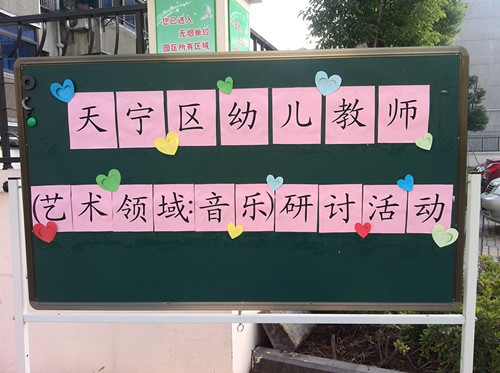 您已进入
无烟单位
园区所有区域
天宁区幼儿教师
(艺术领域:音乐)研讨活动